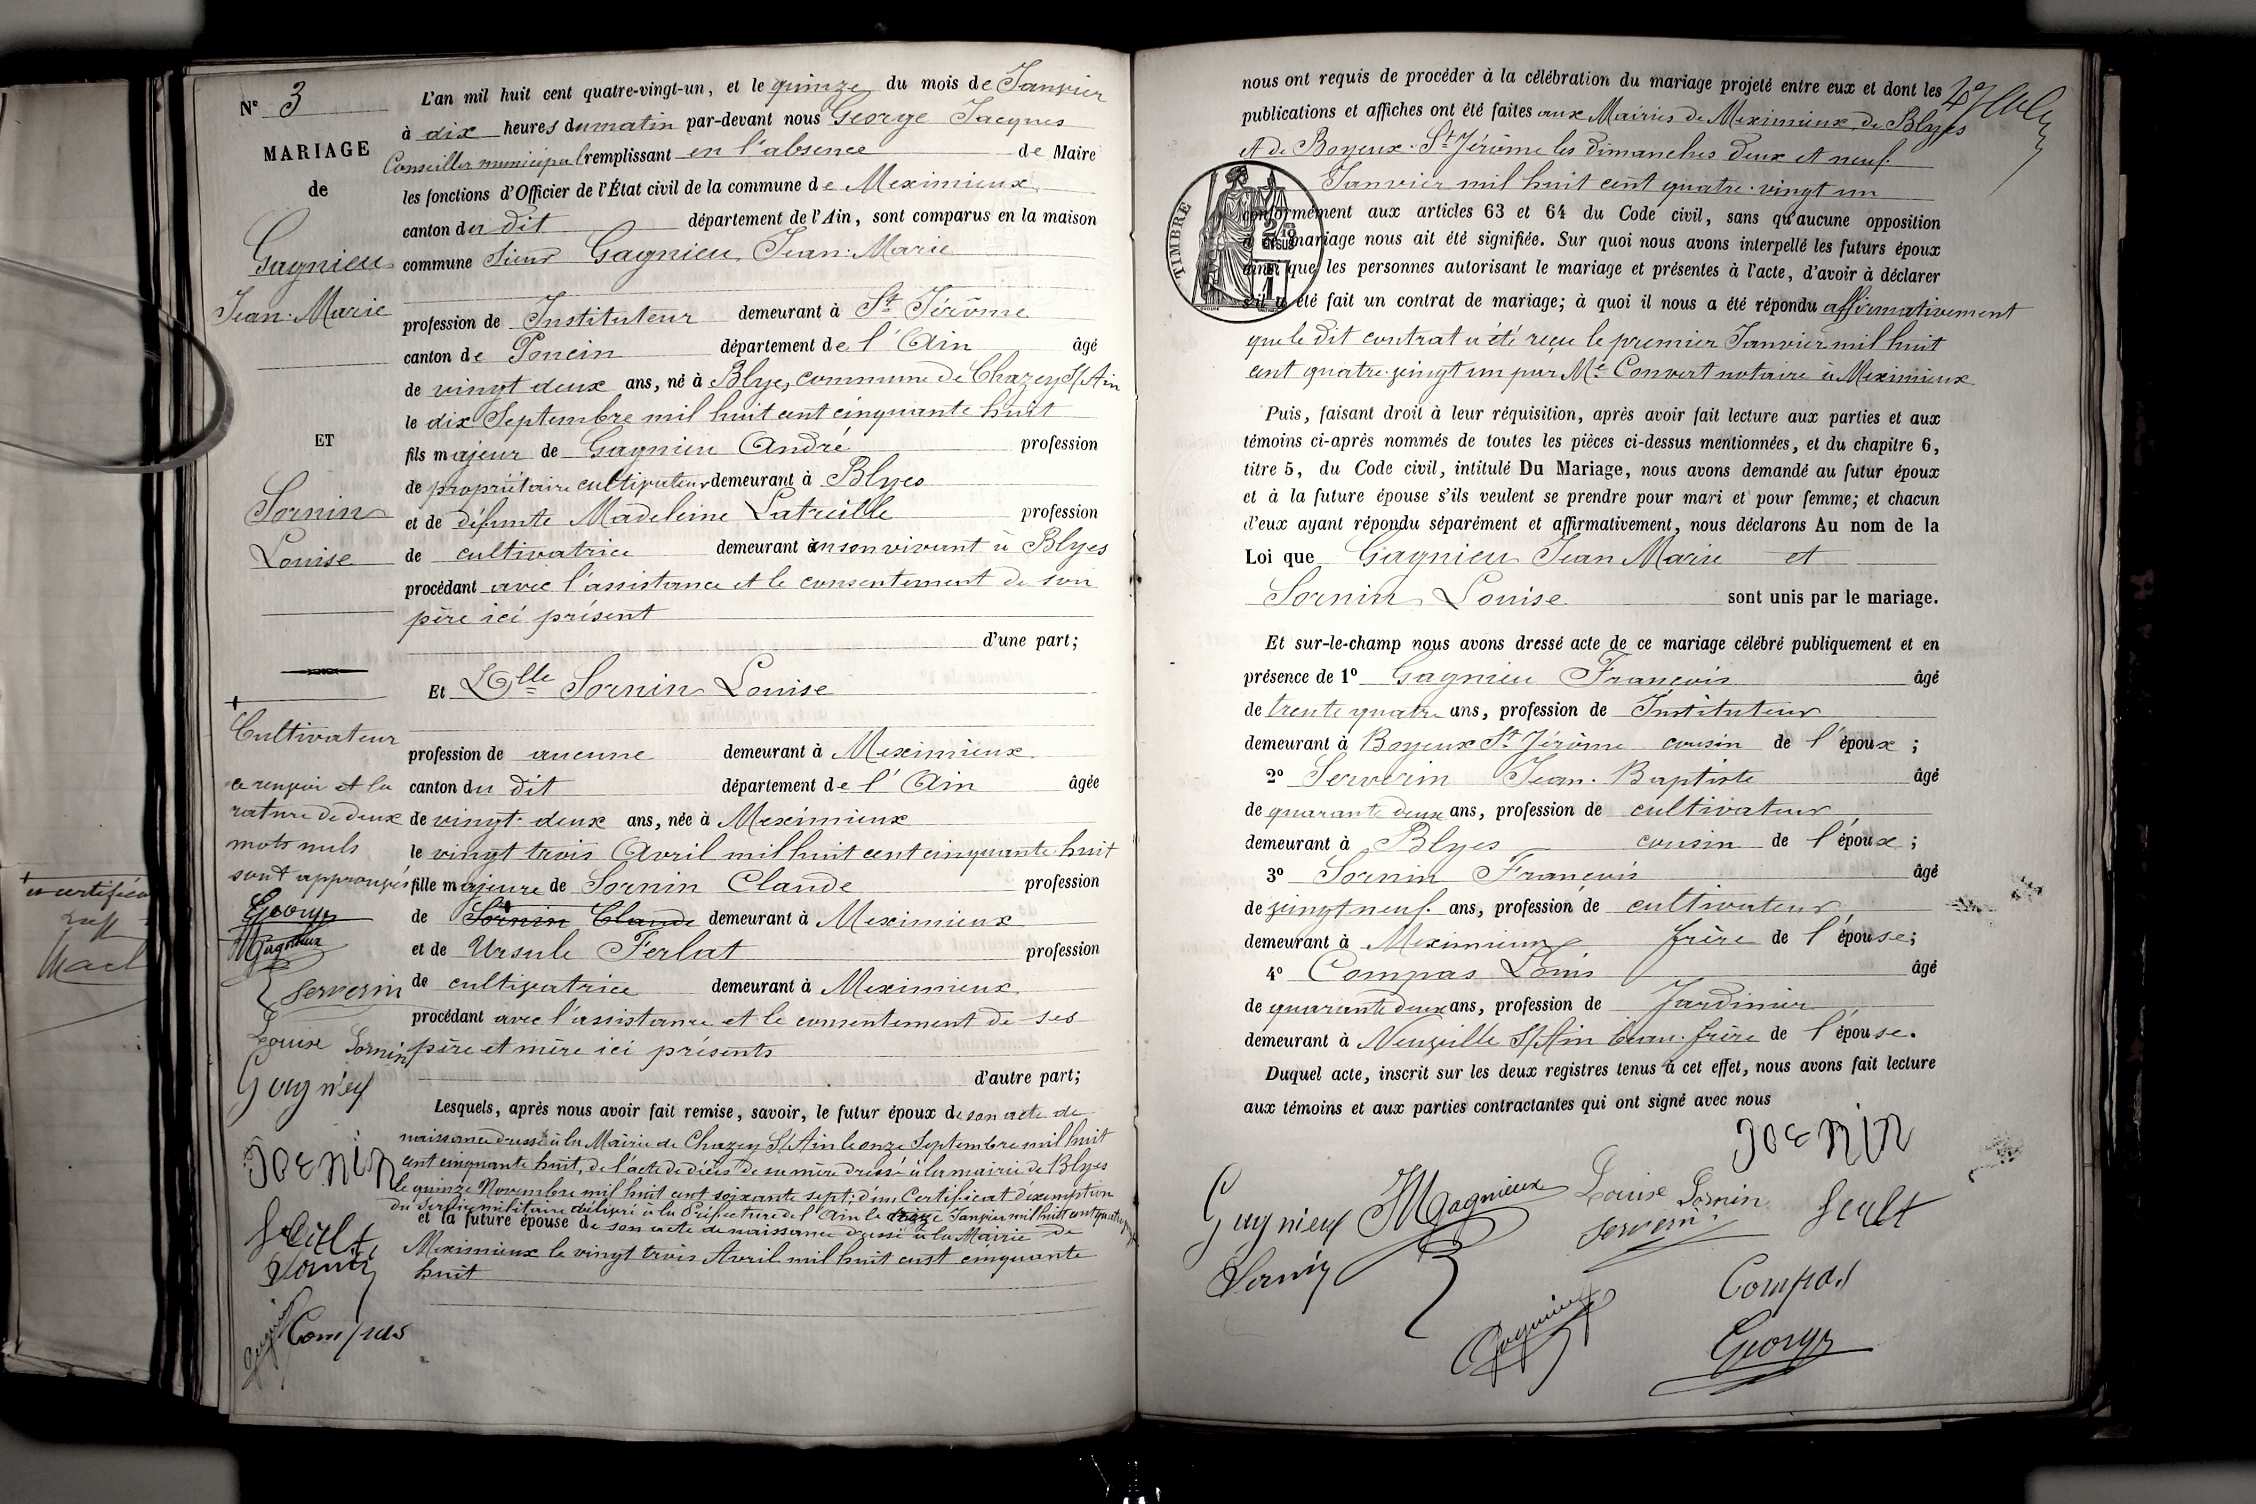 N° 3
MARIAGE
de
Gagnieu
Jean-Marie
ET
Sornin
Louise
L'an mil huit cent quatre-vingt-un, et le quinze du mois de Janvier
à dix heures du matin par-devant nous George Jacques
Conseiller municipal remplissant en l'absence de Maire
les fonctions d'Officier de l'État civil de la commune de Meximieux
canton du dit département de l'Ain, sont comparus en la maison
commune Sieur Gagnieu Jean-Marie
profession de Instituteur demeurant à St Jérôme
canton de Poncin département de l'Ain âgé
de vingt deux ans, né à Blyes, commune de Chazey S/Ain
le dix Septembre mil huit cent cinquante huit
fils majeur de Gagnieu André profession
de propriétaire cultivateur demeurant à Blyes
et de défunte Madeleine Latreille profession
de cultivatrice demeurant à en son vivant à Blyes
procédant avec l'assistance et le consentement de son
père ici présent
d'une part;
Et Dlle Sornin Louise
profession de aucune demeurant à Meximieux
canton du dit département de l'Ain âgée
de vingt-deux ans, née à Meximieux
le vingt trois Avril mil huit cent cinquante huit
fille majeure de Sornin Claude profession
de Sornin Claude demeurant à Meximieux
et de Ursule Ferlat profession
de cultivatrice demeurant à Meximieux
procédant avec l'assistance et le consentement de ses
père et mère ici présents
d'autre part;
Lesquels, après nous avoir fait remise, savoir, le futur époux de son acte de
naissance dressé à la Mairie de Chazey S/Ain le onze Septembre mil huit
cent cinquante huit, de l'acte de décès de sa mère dressé à la mairie de Blyes
le quinze Novembre mil huit cent soixante sept; d'un Certificat d'exemption
du service militaire délivré à la Préfecture de l'Ain le Janvier mil huit cent quatre
et la future épouse de son acte de naissance dressé à la Mairie de
Meximieux le vingt trois Avril mil huit cent cinquante
huit
Cultivateur
ce renvoi et la
rature de deux
mots nuls
sont approuvés
George
Serverin
Louise Sornin
Gagnieu
Sornin
Compas
nous ont requis de procéder à la célébration du mariage projeté entre eux et dont les
publications et affiches ont été faites aux Mairies de Meximieux, de Blyes
et de Boyeux-St Jérôme les Dimanches deux et neuf
Janvier mil huit cent quatre-vingt un
TIMBRE
conformément aux articles 63 et 64 du Code civil, sans qu'aucune opposition
à ce mariage nous ait été signifiée. Sur quoi nous avons interpellé les futurs époux
ainsi que les personnes autorisant le mariage et présentes à l'acte, d'avoir à déclarer
s'il a été fait un contrat de mariage; à quoi il nous a été répondu affirmativement
que le dit contrat a été reçu le premier Janvier mil huit
cent quatre-vingt un par Me Convert notaire à Meximieux
Puis, faisant droit à leur réquisition, après avoir fait lecture aux parties et aux
témoins ci-après nommés de toutes les pièces ci-dessus mentionnées, et du chapitre 6,
titre 5, du Code civil, intitulé Du Mariage, nous avons demandé au futur époux
et à la future épouse s'ils veulent se prendre pour mari et pour femme; et chacun
d'eux ayant répondu séparément et affirmativement, nous déclarons Au nom de la
Loi que Gagnieu Jean Marie et
Sornin Louise sont unis par le mariage.
Et sur-le-champ nous avons dressé acte de ce mariage célébré publiquement et en
présence de 1° Gagnieu François âgé
de trente quatre ans, profession de Instituteur
demeurant à Boyeux St Jérôme cousin de l'époux;
2° Serverin Jean-Baptiste âgé
de quarante deux ans, profession de cultivateur
demeurant à Blyes cousin de l'époux;
3° Sornin François âgé
de vingt neuf ans, profession de cultivateur
demeurant à Meximieux frère de l'épouse;
4° Compas Louis âgé
de quarante deux ans, profession de Jardinier
demeurant à Neuville S/Ain beau-frère de l'épouse.
Duquel acte, inscrit sur les deux registres tenus à cet effet, nous avons fait lecture
aux témoins et aux parties contractantes qui ont signé avec nous
Gagnieu JMGagnieux Louise Sornin
Serverin
Sornin
Compas
George